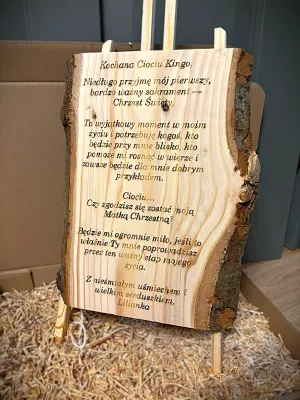 Kochana Ciociu Kingo,
Niedługo przyjmę mój pierwszy,
bardzo ważny sakrament —
Chrzest Święty.
To wyjątkowy moment w moim
życiu i potrzebuję kogoś, kto
będzie przy mnie blisko, kto
pomoże mi rosnąć w wierze i
zawsze będzie dla mnie dobrym
przykładem.
Ciociu...
Czy zgodzisz się zostać moją
Matką Chrzestną?
Będzie mi ogromnie miło, jeśli to
właśnie Ty mnie poprowadzisz
przez ten ważny etap mojego
życia.
Z nieśmiałym uśmiechem i
wielkim serduszkiem,
Lilianka